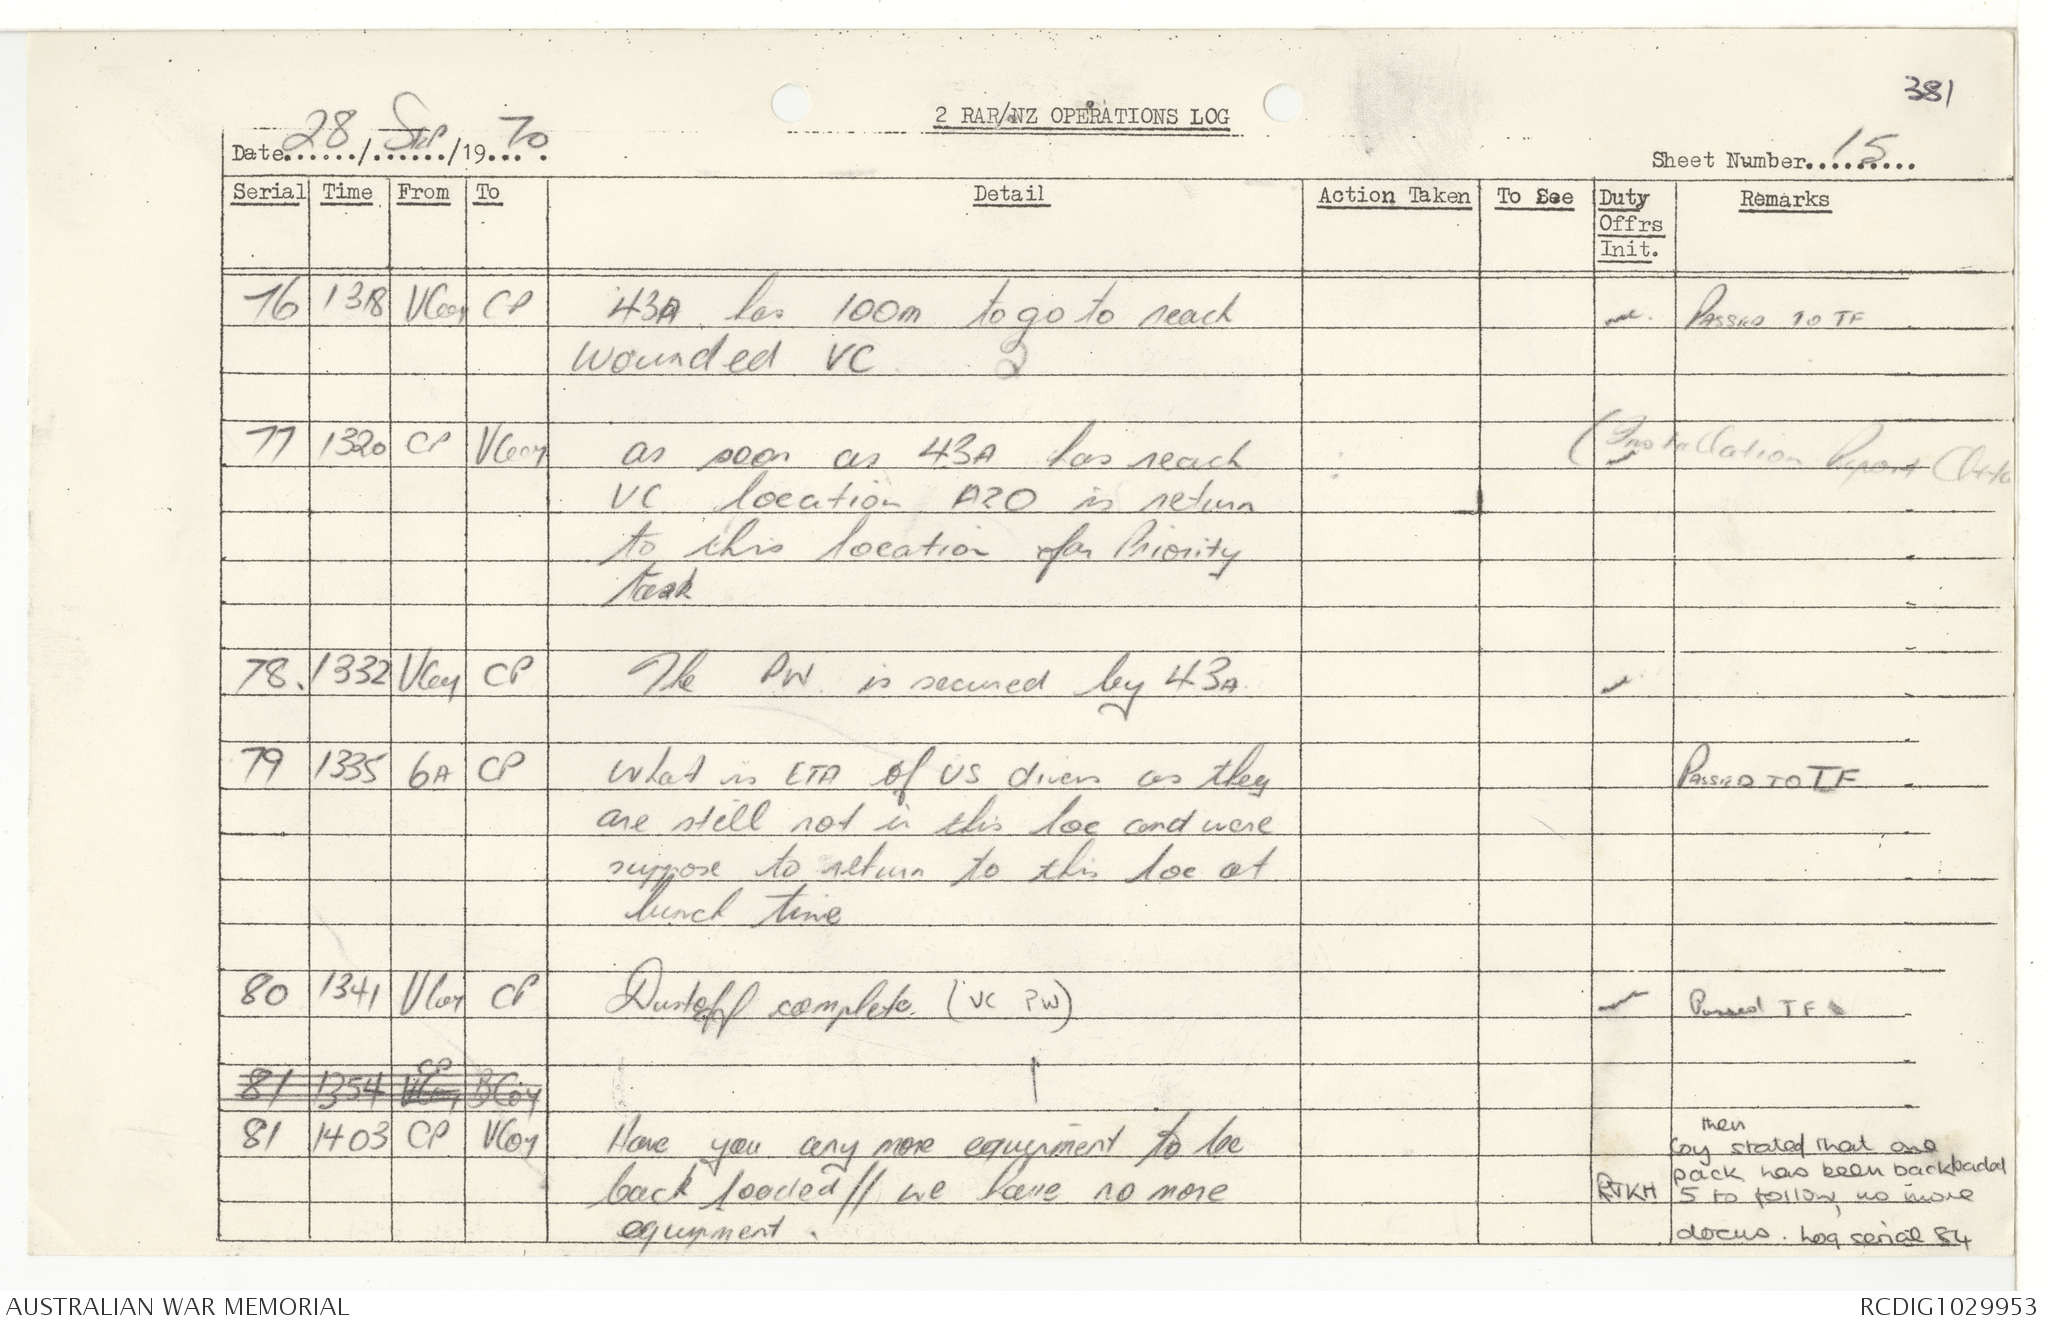 381
2 RAR/NZ OPERATIONS LOG
Date 28/Sep/1970.
Sheet Number 15
Serial Time From To Detail Action Taken To See Duty Offrs Init. Remarks
76 1318 VCoy CP 43A has 100m to go to reach PASSED TO TF
wounded VC 2
77 1320 CP VCoy as soon as 43A has reach (Installation Report
VC location A20 is return
to this location for Priority
task
78. 1332 VCoy CP The PW is secured by 43A.
79 1335 6A CP What is ETA of US divers as they PASSED TO TF
are still not in this loc and were
suppose to return to this loc at
lunch time
80 1341 VCoy CP Dustoff complete. (VC PW) Passed TF
CP
81 1354 VCoy BCoy
81 1403 CP VCoy Have you any more equipment to be
back loaded // we have no more
equipment.
then
Coy stated that one
pack has been backloaded
RJKH 5 to follow, no more
docus. Log serial 84
AUSTRALIAN WAR MEMORIAL
RCDIG1029953